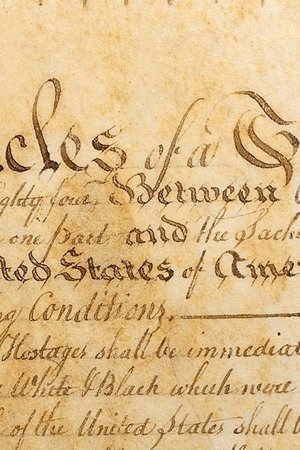 cles of a
ghty four Between
one Part and the Sachem
ted States of Ame
g Conditions,
Hostages shall be immediat
White & Black which were
of the United States shall b